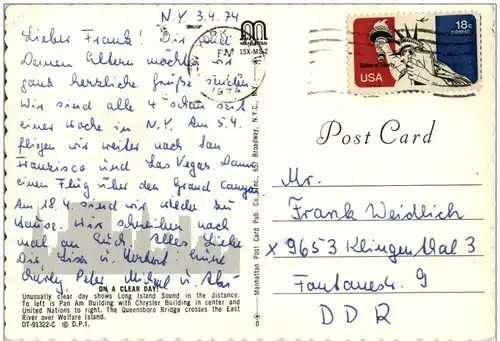 N.Y. 3.4.74
Lieber Frank! Dir und
Deinen Eltern möchten wir
ganz herzliche Grüße senden.
Wir sind alle 4 schon seit
einer Woche in N.Y. Am 5.4.
fliegen wir weiter nach San
Franzisco und Las Vegas. Dann
einen Flug über den Grand Canyon.
Am 18.4. sind wir wieder zu
Hause. Wir schreiben noch
mal an Euch. Alles Liebe
Dir, und Herbert
Peter, Michael u.
ON A CLEAR DAY
Unusually clear day shows Long Island Sound in the distance.
To left is Pan Am Building with Chrysler Building in center and
United Nations to right. The Queensboro Bridge crosses the East
River over Welfare Island.
DT-91322-C © D.P.I.
MANHATTAN
15X-M3-2
PM
1974
Manhattan Post Card Pub. Co., Inc., 657 Broadway, N.Y.C., N.Y.
18c
AIRMAIL
Statue of Liberty
USA
Post Card
Mr.
Frank Weidlich
x 9653 Klingenthal 3
Fontanestr. 9
DDR